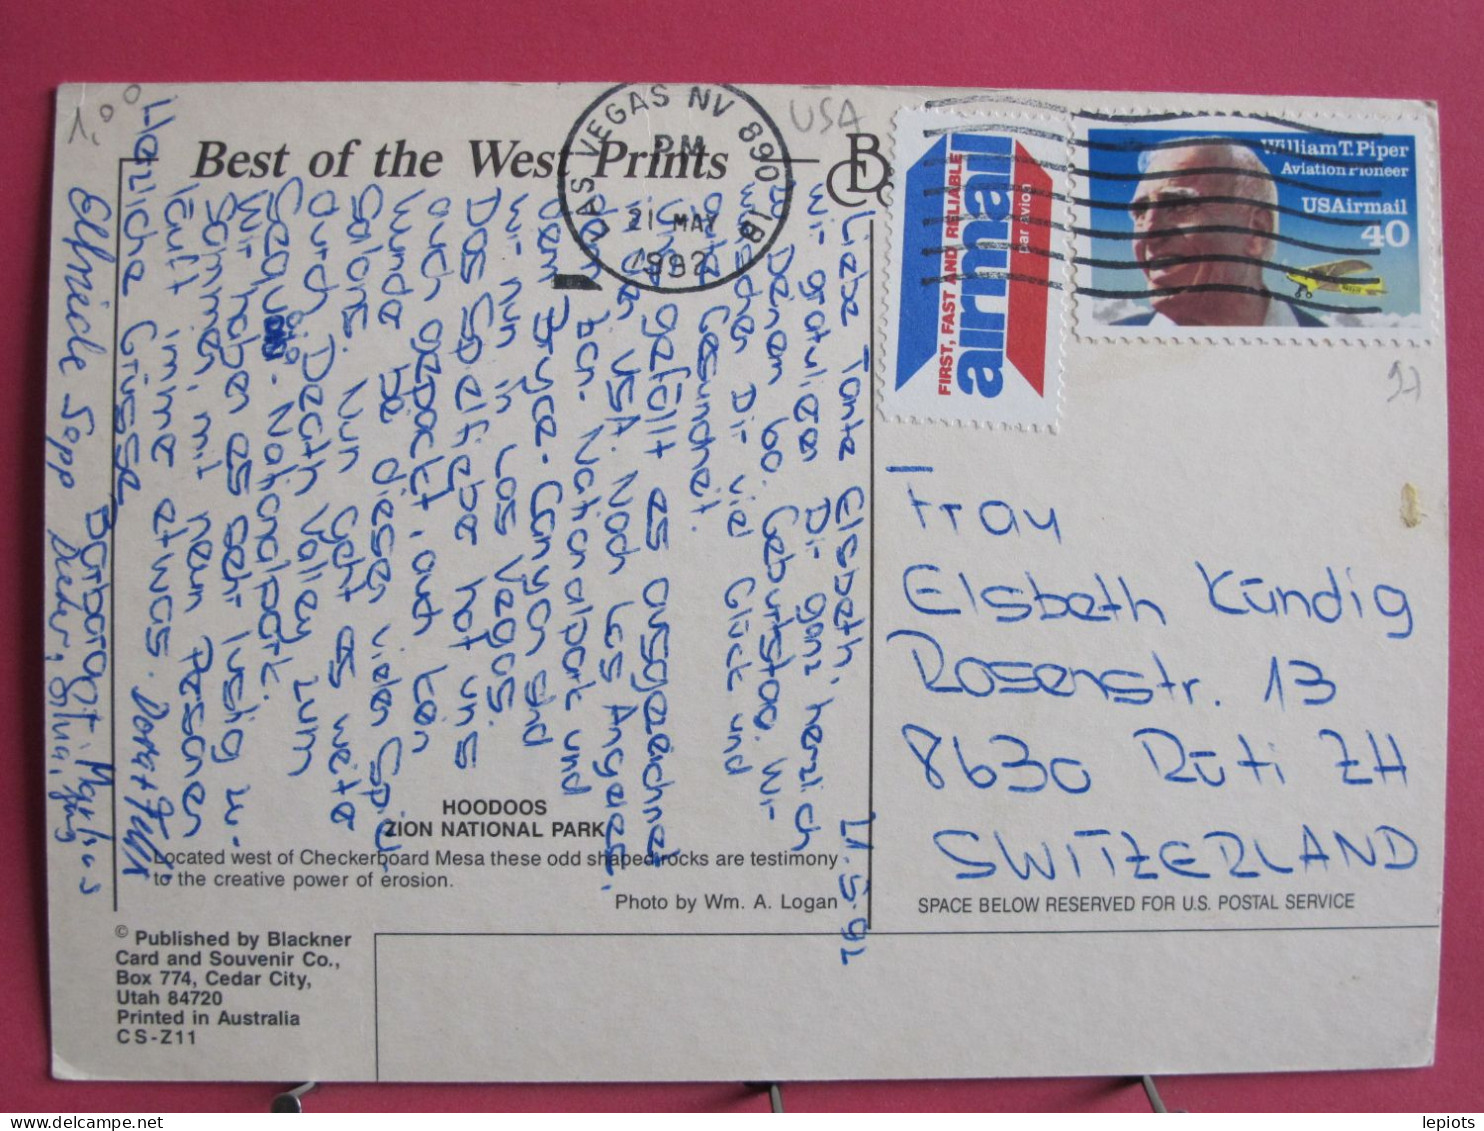 1,00
USA
Best of the West Prints
LAS VEGAS NV 890 1B
PM
21 MAY
1992
FIRST, FAST AND RELIABLE
airmail
par avion
William T. Piper
Aviation Pioneer
USAirmail
40
21.5.92
Liebe Tante Elsbeth,
wir gratulieren Dir ganz herzlich
zu Deinen 60. Geburtstag. Wir
wünschen Dir viel Glück und
gute Gesundheit.
Uns gefällt es ausgezeichnet
in den USA. Nach Los Angeles,
dem Bryce-Canyon und
wir nun in Las Vegas.
Das Spielfieber hat uns
auch gepackt, auch kein
Wunder bei diesen vielen Spiel
Salons. Nun geht es weiter
durch Death Valley zum
Sequoia-Nationalpark.
Wir haben es sehr lustig zu-
sammen, mit neun Personen
läuft immer etwas.
Herzliche Grüsse
Barbara
Markus
Sepp
Silvia,
Frau
Elsbeth Kündig
Rosenstr. 13
8630 Rüti ZH
SWITZERLAND
HOODOOS
ZION NATIONAL PARK
Located west of Checkerboard Mesa these odd shaped rocks are testimony
to the creative power of erosion.
Photo by Wm. A. Logan
SPACE BELOW RESERVED FOR U.S. POSTAL SERVICE
© Published by Blackner
Card and Souvenir Co.,
Box 774, Cedar City,
Utah 84720
Printed in Australia
CS-Z11
delcampe.net
lepiots